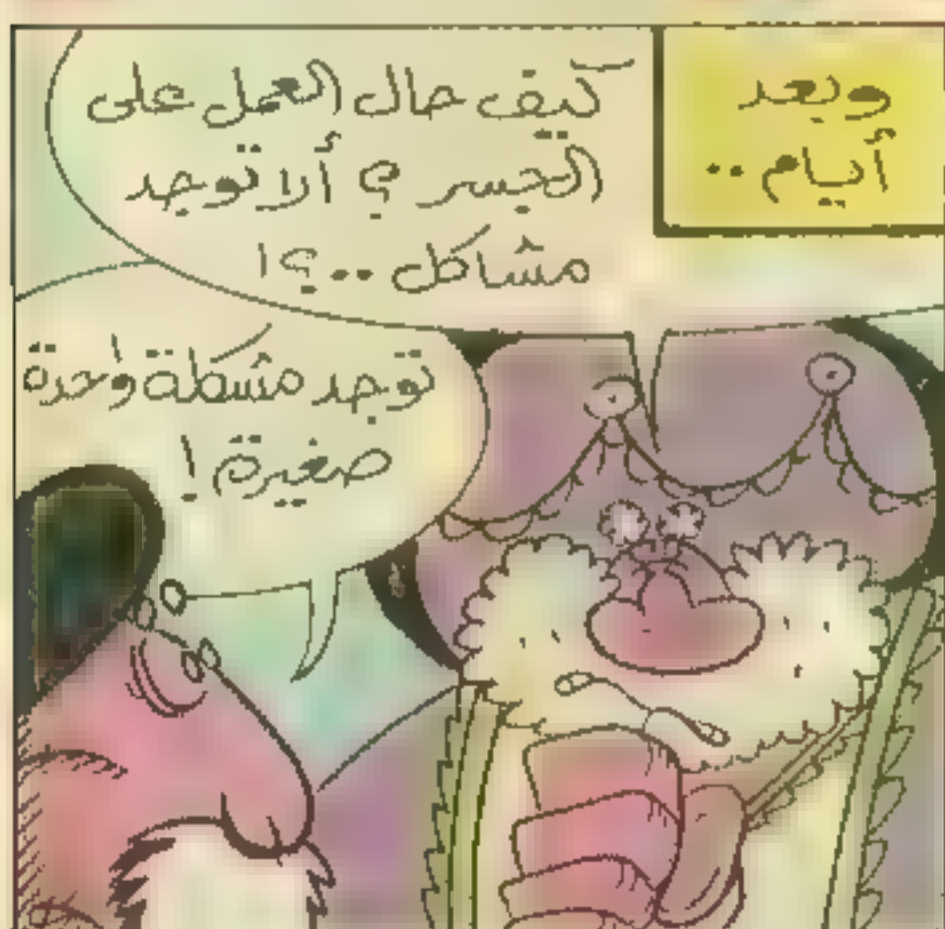 وبعد
أيام ..
كيف حال العمل على
الجسر ؟ ألا توجد
مشاكل ..؟!
توجد مشكلة واحدة
صغيرة !